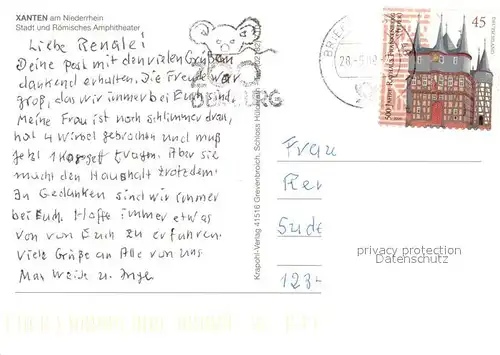 XANTEN am Niederrhein
Stadt und Römisches Amphitheater
Liebe Renate!
Deine Post mit den vielen Grüßen
dankend erhalten. Die Freude war
groß, das wir immer bei Euch sind.
Meine Frau ist noch schlimmer dran,
hat 4 Wirbel gebrochen und muß
jetzt 1 Korsett tragen. Aber sie
macht den Haushalt trotzdem.
In Gedanken sind wir immer
bei Euch. Hoffe immer etwas
von Euch zu erfahren.
Viele Grüße an Alle von uns
Max u. Inge
ZOO
DUISBURG
BRIEF
28.-5.
45
DEUTSCHLAND
500 Jahre Rathaus Frankenberg (Eder)
Krapohl-Verlag 41516 Grevenbroich, Schloss Hülchrath
Frau
Re
Sude
123
privacy protection
Datenschutz